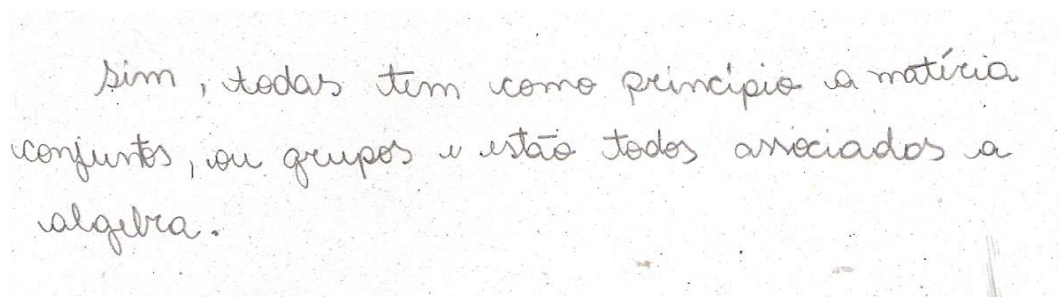 sim, todas tem como princípio a matéria
conjuntos, ou grupos e estão todos associados a
algebra.